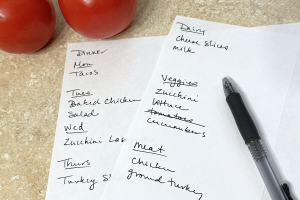 Dinner
Mon
Tacos
Tues
Baked Chicken
Salad
Wed
Zucchini Las
Thurs
Turkey S'
Dairy
cheese slices
milk
Veggies
zucchini
lettuce
tomatoes
cucumbers
Meat
chicken
ground turkey